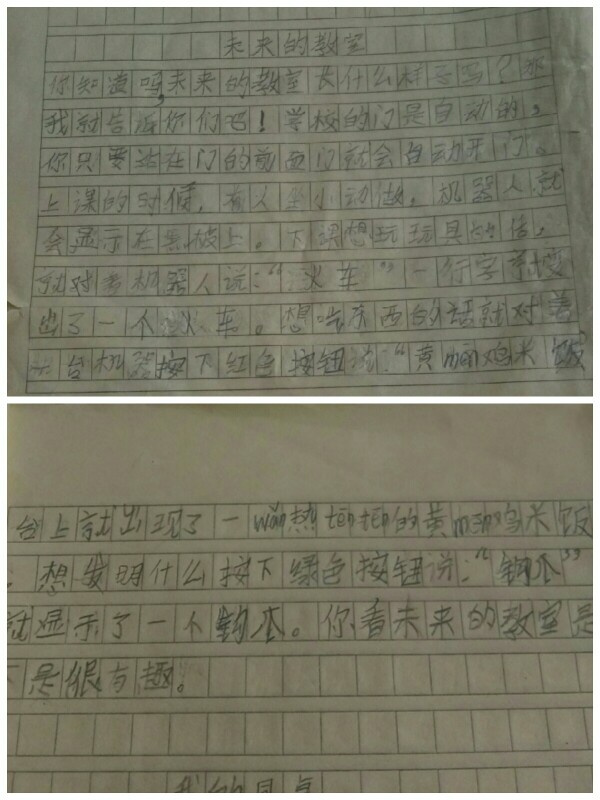 未来的教室
你知道吗,未来的教室长什么样子吗?那
我就告诉你们吧!学校的门是自动的,
你只要站在门的前面门就会自动开门。
上课的时候,有人坐小动做,机器人就
会显示在黑板上。下课想玩玩具的话,
就对着机器人说:“火车”一行字就变
出了一个火车。想吃东西的话就对着
一台机器按下红色按钮说:“黄mèn鸡米饭
台上就出现了一wǎn热tēngtēng的黄mèn鸡米饭
。想发明什么按下绿色按钮说:“钩爪”
就显示了一个钩爪。你看未来的教室是
不是很有趣。
我的